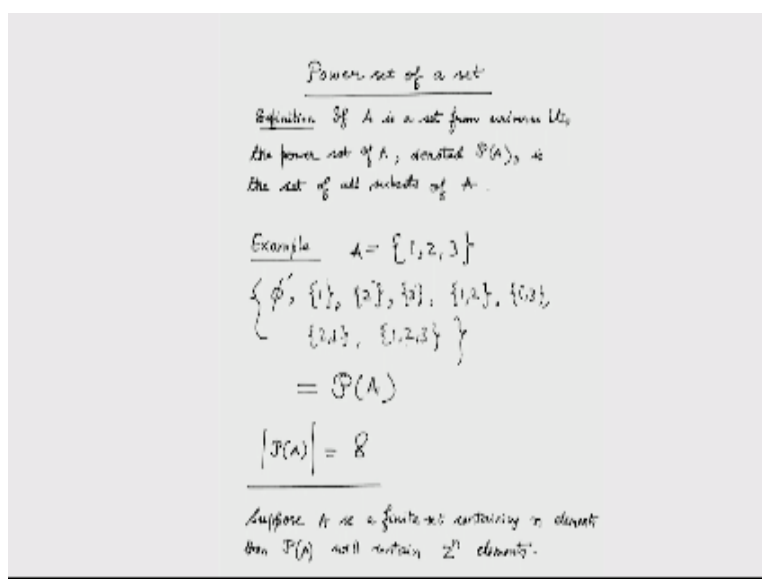 Power set of a set
Definition If A is a set from universe U,
the power set of A, denoted P(A), is
the set of all subsets of A.
Example A = {1, 2, 3}
{ φ, {1}, {2}, {3}, {1,2}, {1,3},
{2,3}, {1,2,3} }
= P(A)
|P(A)| = 8
Suppose A is a finite set containing n element
then P(A) will contain 2ⁿ elements.